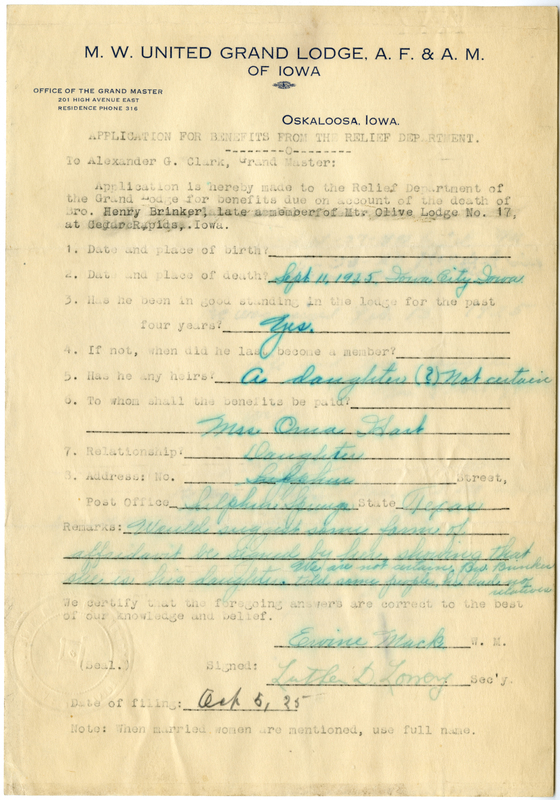 M. W. UNITED GRAND LODGE, A. F. & A. M.
OF IOWA
OFFICE OF THE GRAND MASTER
201 HIGH AVENUE EAST
RESIDENCE PHONE 316
OSKALOOSA, IOWA.
APPLICATION FOR BENEFITS FROM THE RELIEF DEPARTMENT.
-------O--------
To Alexander G. Clark, Grand Master:
Application is hereby made to the Relief Department of
the Grand Lodge for benefits due on account of the death of
Bro. Henry Brinker, late a member of Mt. Olive Lodge No. 17,
at Cedar Rapids, Iowa.
1. Date and place of birth?
2. Date and place of death? Sept 11, 1925. Iowa City Iowa
3. Has he been in good standing in the lodge for the past
four years? Yes.
4. If not, when did he last become a member?
5. Has he any heirs? A daughter (?) Not certain
6. To whom shall the benefits be paid?
Mrs. Omar Hart
7. Relationship? Daughter
8. Address: No. Sulphur Street,
Post Office Sulphur Springs State Texas
Remarks: Would suggest some form of
affidavit be made by her, showing that
she is his daughter. We are not certain. Bro. Brinker
told some people, he had no
relatives
We certify that the foregoing answers are correct to the best
of our knowledge and belief.
Ervine Mack W. M.
(Seal.) Signed: Luther D. Lowery Sec'y.
Date of filing: Oct 5, 25
Note: When married women are mentioned, use full name.